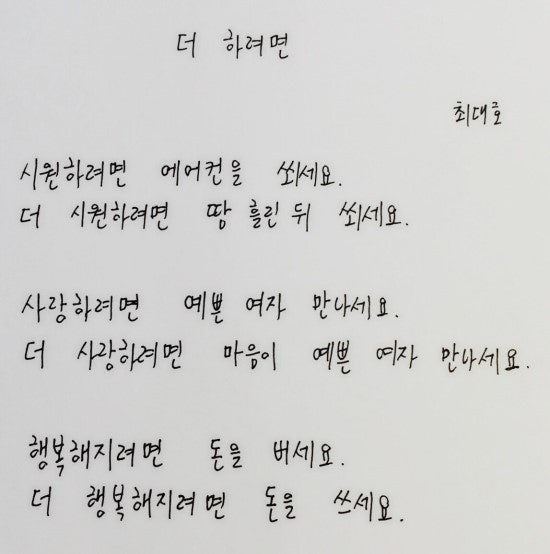 더 하려면
최대호
시원하려면 에어컨을 쐬세요.
더 시원하려면 땅 흘린 뒤 쐬세요.
사랑하려면 예쁜 여자 만나세요.
더 사랑하려면 마음이 예쁜 여자 만나세요.
행복해지려면 돈을 버세요.
더 행복해지려면 돈을 쓰세요.